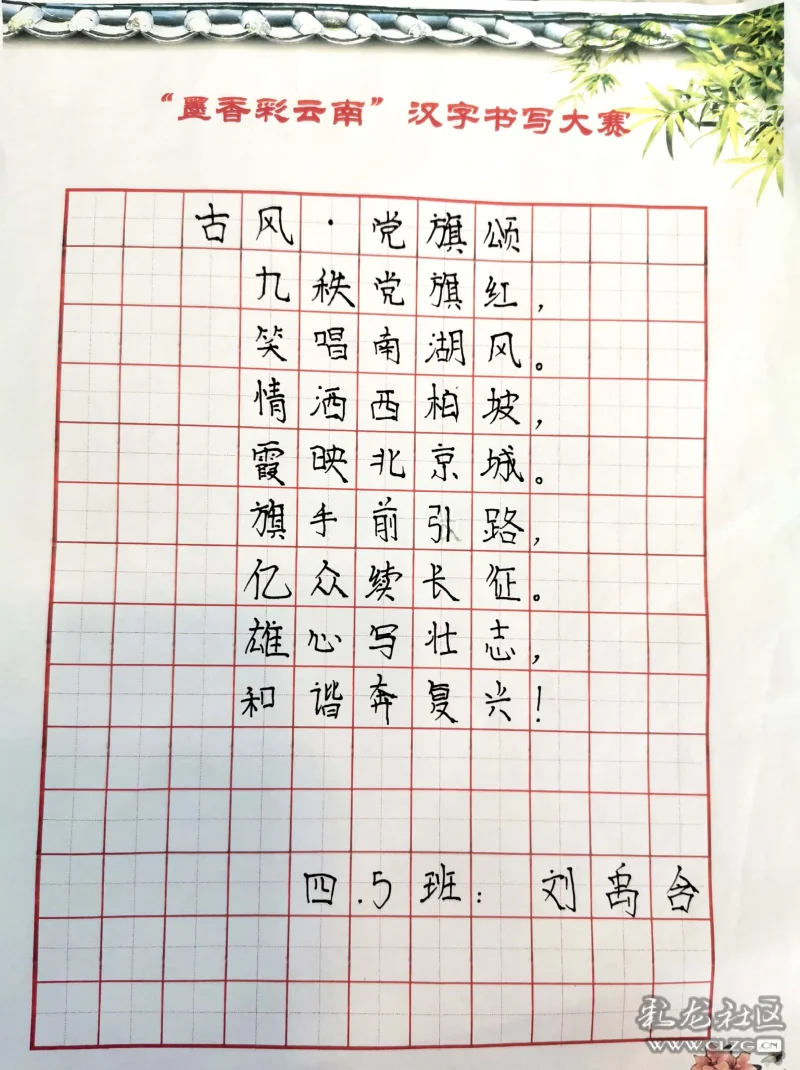 “墨香彩云南”汉字书写大赛
古风·党旗颂
九秩党旗红，
笑唱南湖风。
情洒西柏坡，
霞映北京城。
旗手前引路，
亿众续长征。
雄心写壮志，
和谐奔复兴！
四.5班：刘禹含
乳龙社区
WWW.CLZG.CN